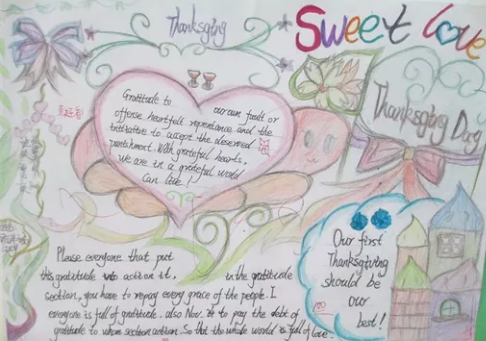 Thanksgiving
Sweet love
Thanksgiving Day
Gratitude to our own fault or
offense heartfelt repentance and the
initiative to accept the deserved
punishment. With grateful hearts,
we are in a grateful world
can live!
Our first
Thanksgiving
should be
our
best!
Please everyone that put
this gratitude into action it, in the gratitude
section, you have to repay every grace of the people. I
everyone is full of gratitude. also Nov. to pay the debt of
gratitude to whom section action. So that the whole world is full of love.